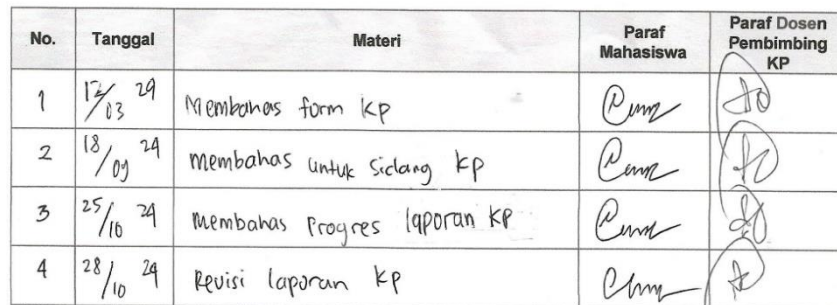 No. Tanggal Materi Paraf Mahasiswa Paraf Dosen Pembimbing KP
1 12/03 24 Membahas form KP
2 18/09 24 membahas untuk Sidang KP
3 25/10 24 Membahas Progres laporan KP
4 28/10 24 Revisi laporan KP